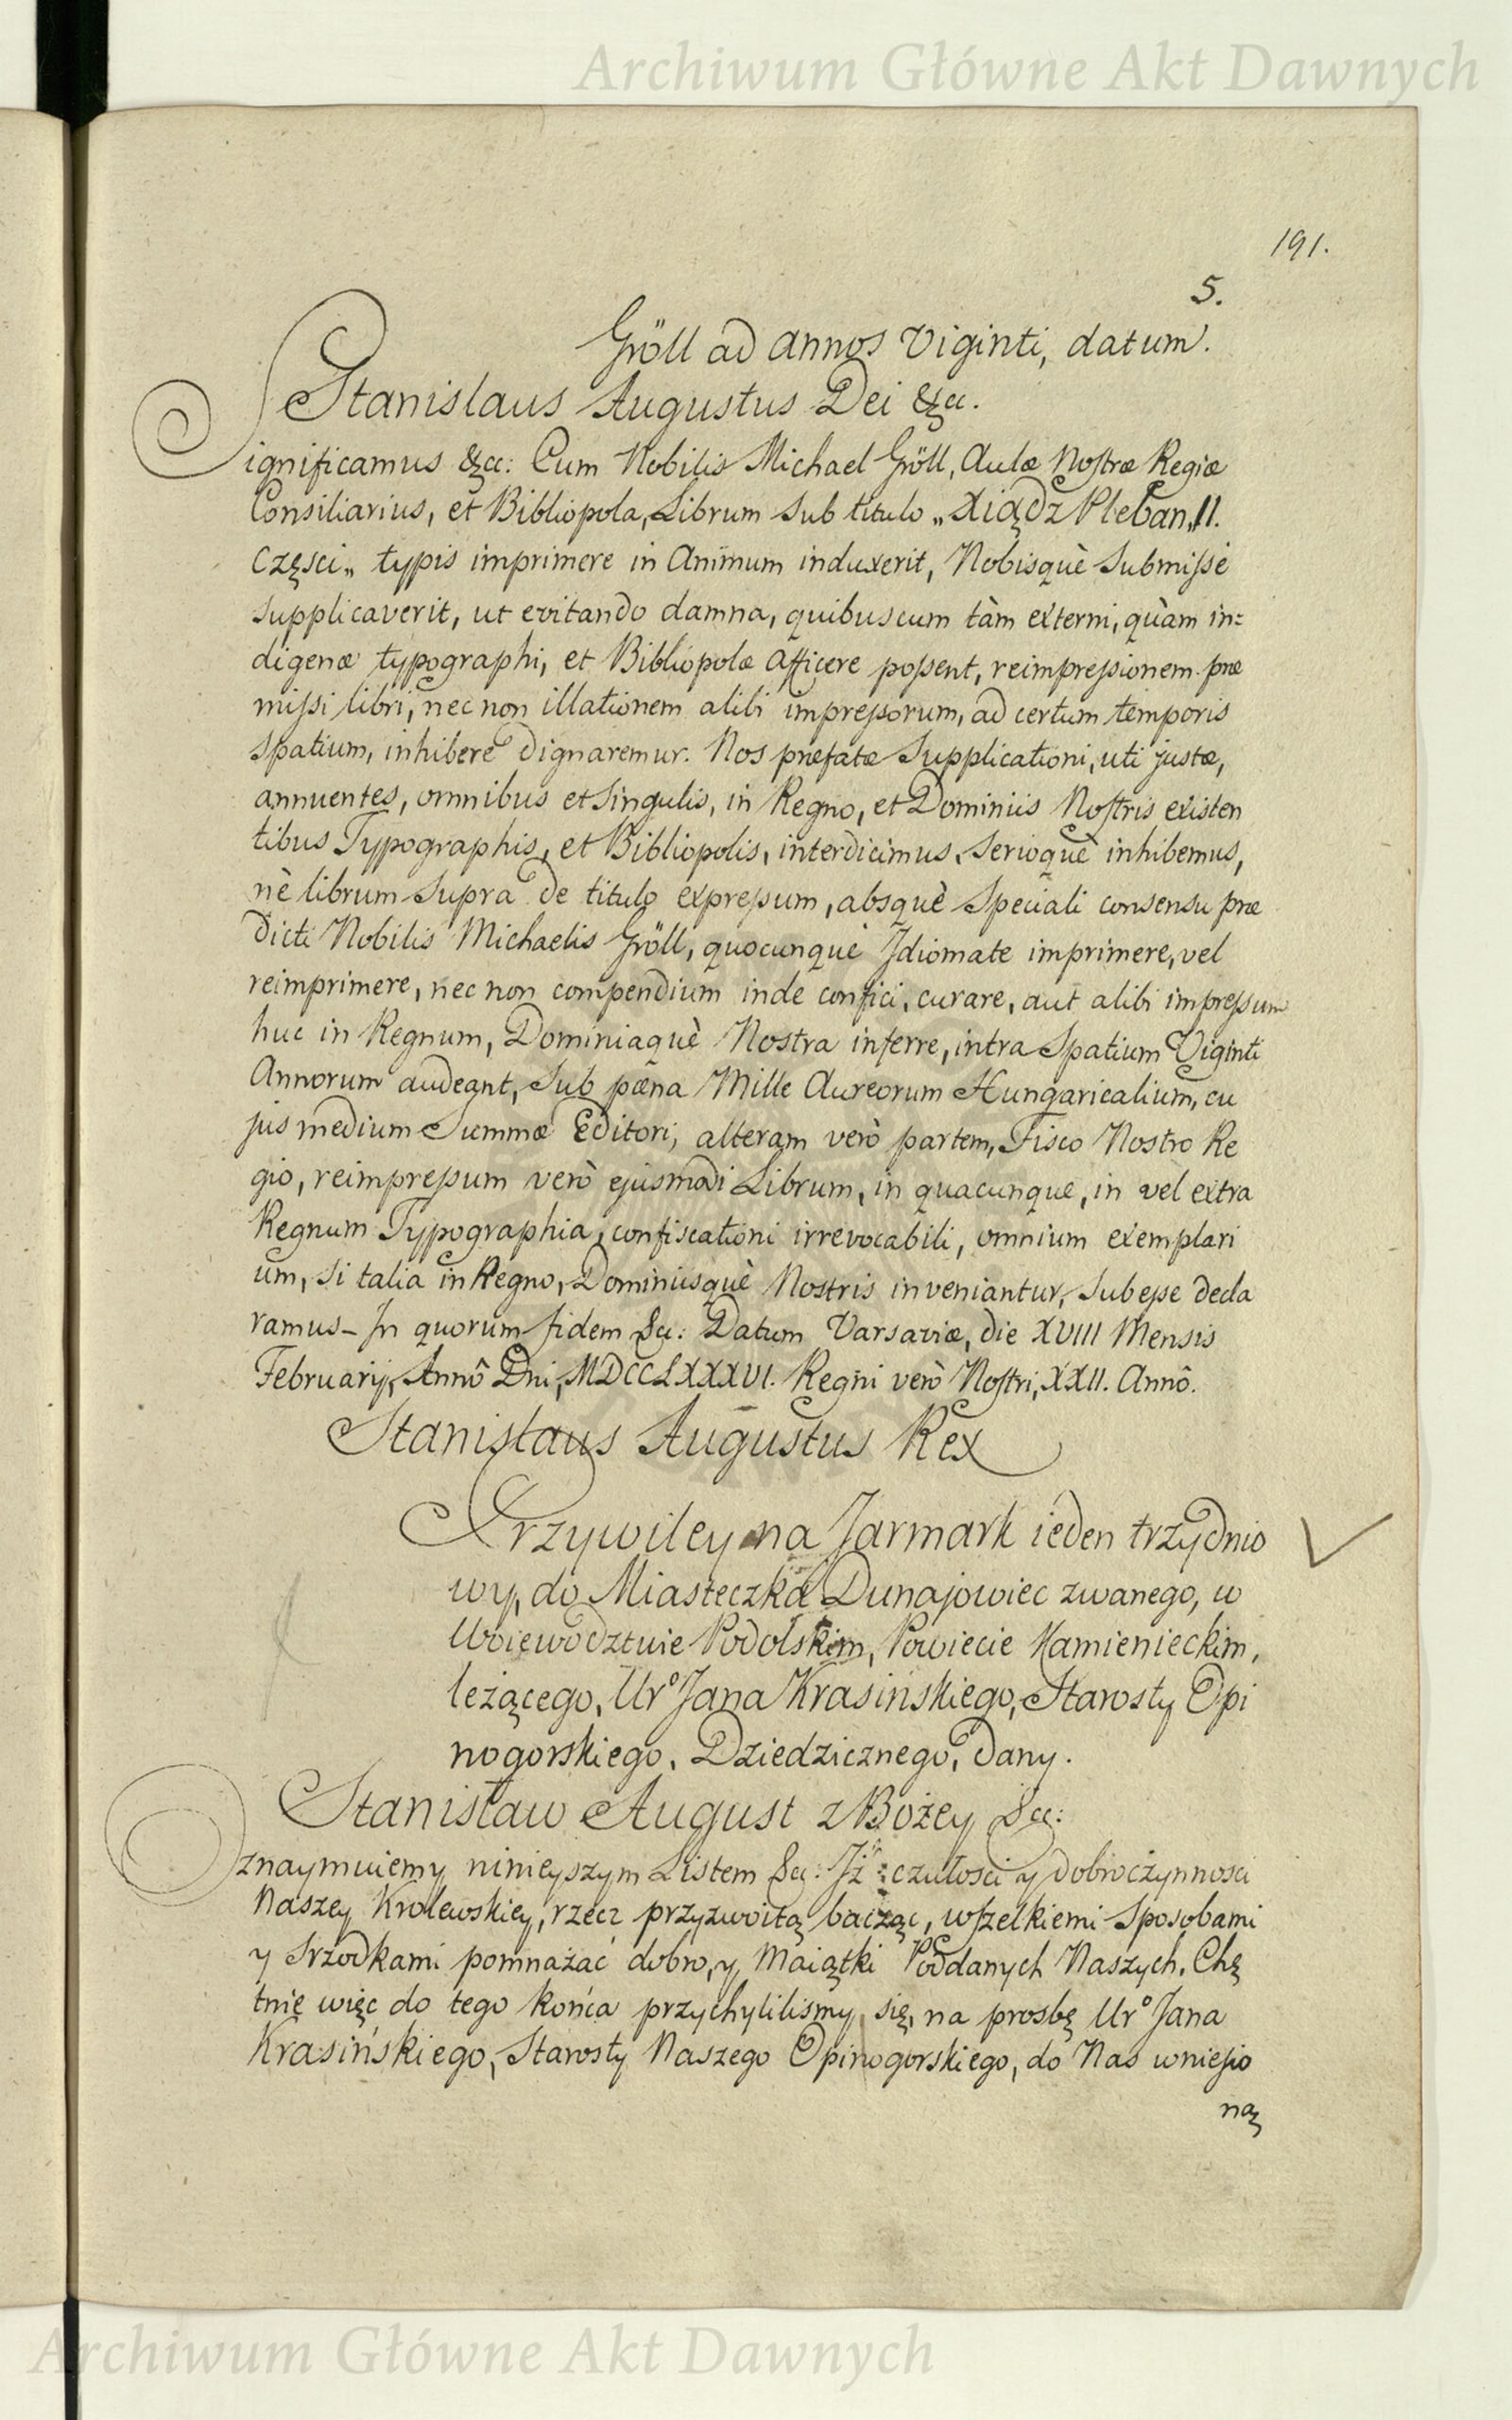 Archiwum Główne Akt Dawnych
191.
5.
Gröll ad annos Viginti, datum.
Stanislaus Augustus Dei &cc.
Significamus &cc: Cum Nobilis Michael Gröll, Aulæ Nostræ Regiæ
Consiliarius, et Bibliopola, Librum sub titulo „Xiądz Pleban, II.
Częsci„ typis imprimere in Animum induxerit, Nobisquè Submisse
supplicaverit, ut evitando damna, quibuscum tàm externi, quàm in=
digenæ typographi, et Bibliopolæ afficere possent, reimpressionem præ
missi libri, nec non illationem alibi impressorum, ad certum temporis
spatium, inhibere dignaremur. Nos præfatæ Supplicationi, uti justæ,
annuentes, omnibus et singulis, in Regno, et Dominiis Nostris existen
tibus Typographis, et Bibliopolis, interdicimus, Serioquè inhibemus,
nè librum supra de titulo expressum, absquè Speciali consensu præ
dicti Nobilis Michaelis Gröll, quocunquè Idiomate imprimere, vel
reimprimere, nec non compendium inde confici, curare, aut alibi impressum
huc in Regnum, Dominiaquè Nostra inferre, intra Spatium Viginti
Annorum audeant, Sub pæna Mille Aureorum Hungaricalium, cu
jus medium Summæ Editori, alteram verò partem, Fisco Nostro Re
gio, reimpressum verò ejusmodi Librum, in quacunque, in vel extra
Regnum Typographia, confiscationi irrevocabili, omnium exemplari
um, si talia in Regno, Dominiisquè Nostris inveniantur, Subesse decla
ramus_ In quorum fidem &cc: Datum Varsaviæ, die XVIII Mensis
Februarij, Annô Dni, MDCCLXXXVI. Regni verò Nostri, XXII. Annô.
Stanislaus Augustus Rex
Przywiley na Jarmark ieden trzydnio
wy, do Miasteczka Dunajowiec zwanego, w
Woiewodztwie Podolskim, Powiecie Kamienieckim,
leżącego, Ur° Jana Krasińskiego, Starosty Opi
nogorskiego, Dziedzicznego, dany.
Stanisław August z Bożey &cc:
Oznaymuiemy ninieyszym Listem &cc: Iż czułosci y dobroczynnosci
Naszey Krolewskiey, rzecz przyzwoitą bacząc, wszelkiemi Sposobami
y srzodkami pomnażać dobro, y Maiątki Poddanych Naszych. Chę
tnie więc do tego końca przychylilismy się, na prosbę Ur° Jana
Krasińskiego, Starosty Naszego Opinogorskiego, do Nas wniesio
ną
Archiwum Główne Akt Dawnych